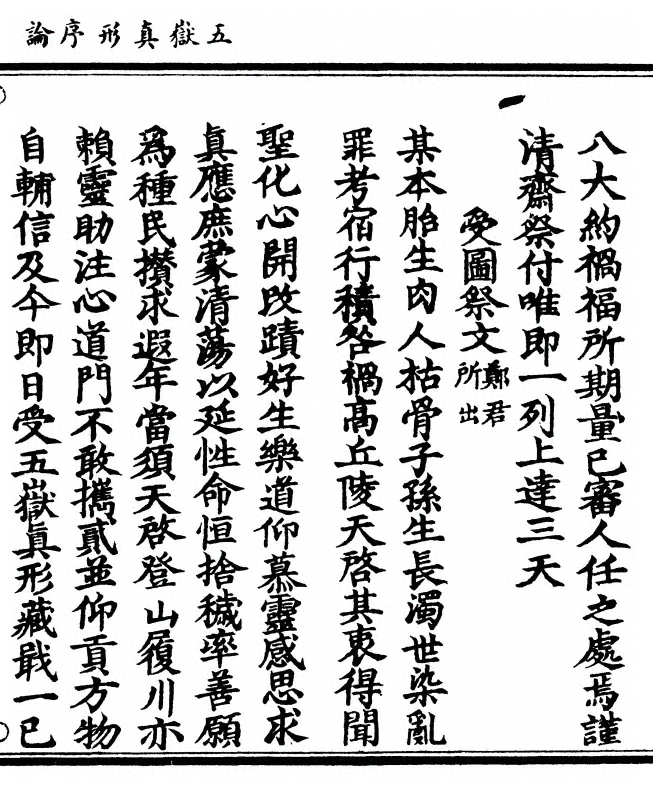 五嶽真形序論
八大約禍福所期量已審人任之處焉謹
清齋祭付唯即一列上達三天
受圖祭文鄭君所出
某本胎生肉人枯骨子孫生長濁世染亂
罪考宿行積咎禍高丘陵天啓其衷得聞
聖化心開改蹟好生樂道仰慕靈感思求
真應庶蒙清蕩以延性命恒捨穢率善願
為種民攢求遐年當須天啓登山履川亦
賴靈助注心道門不敢攜貳並仰貢方物
自輔信及今即日受五嶽真形藏戢一已